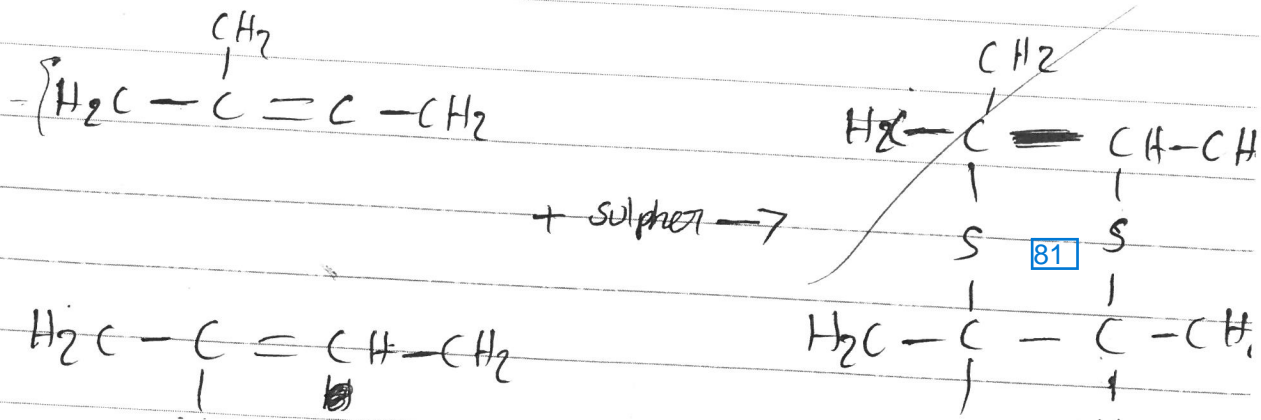 CH2
CH2
{H2C — C = C — CH2
H2C — C — CH — CH
+ sulpher →
S S
81
H2C — C = CH — CH2
H2C — C — C — CH